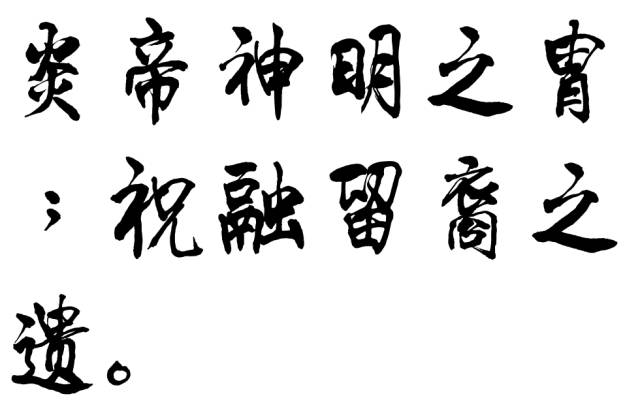 炎帝神明之胄
；祝融留裔之
遗。